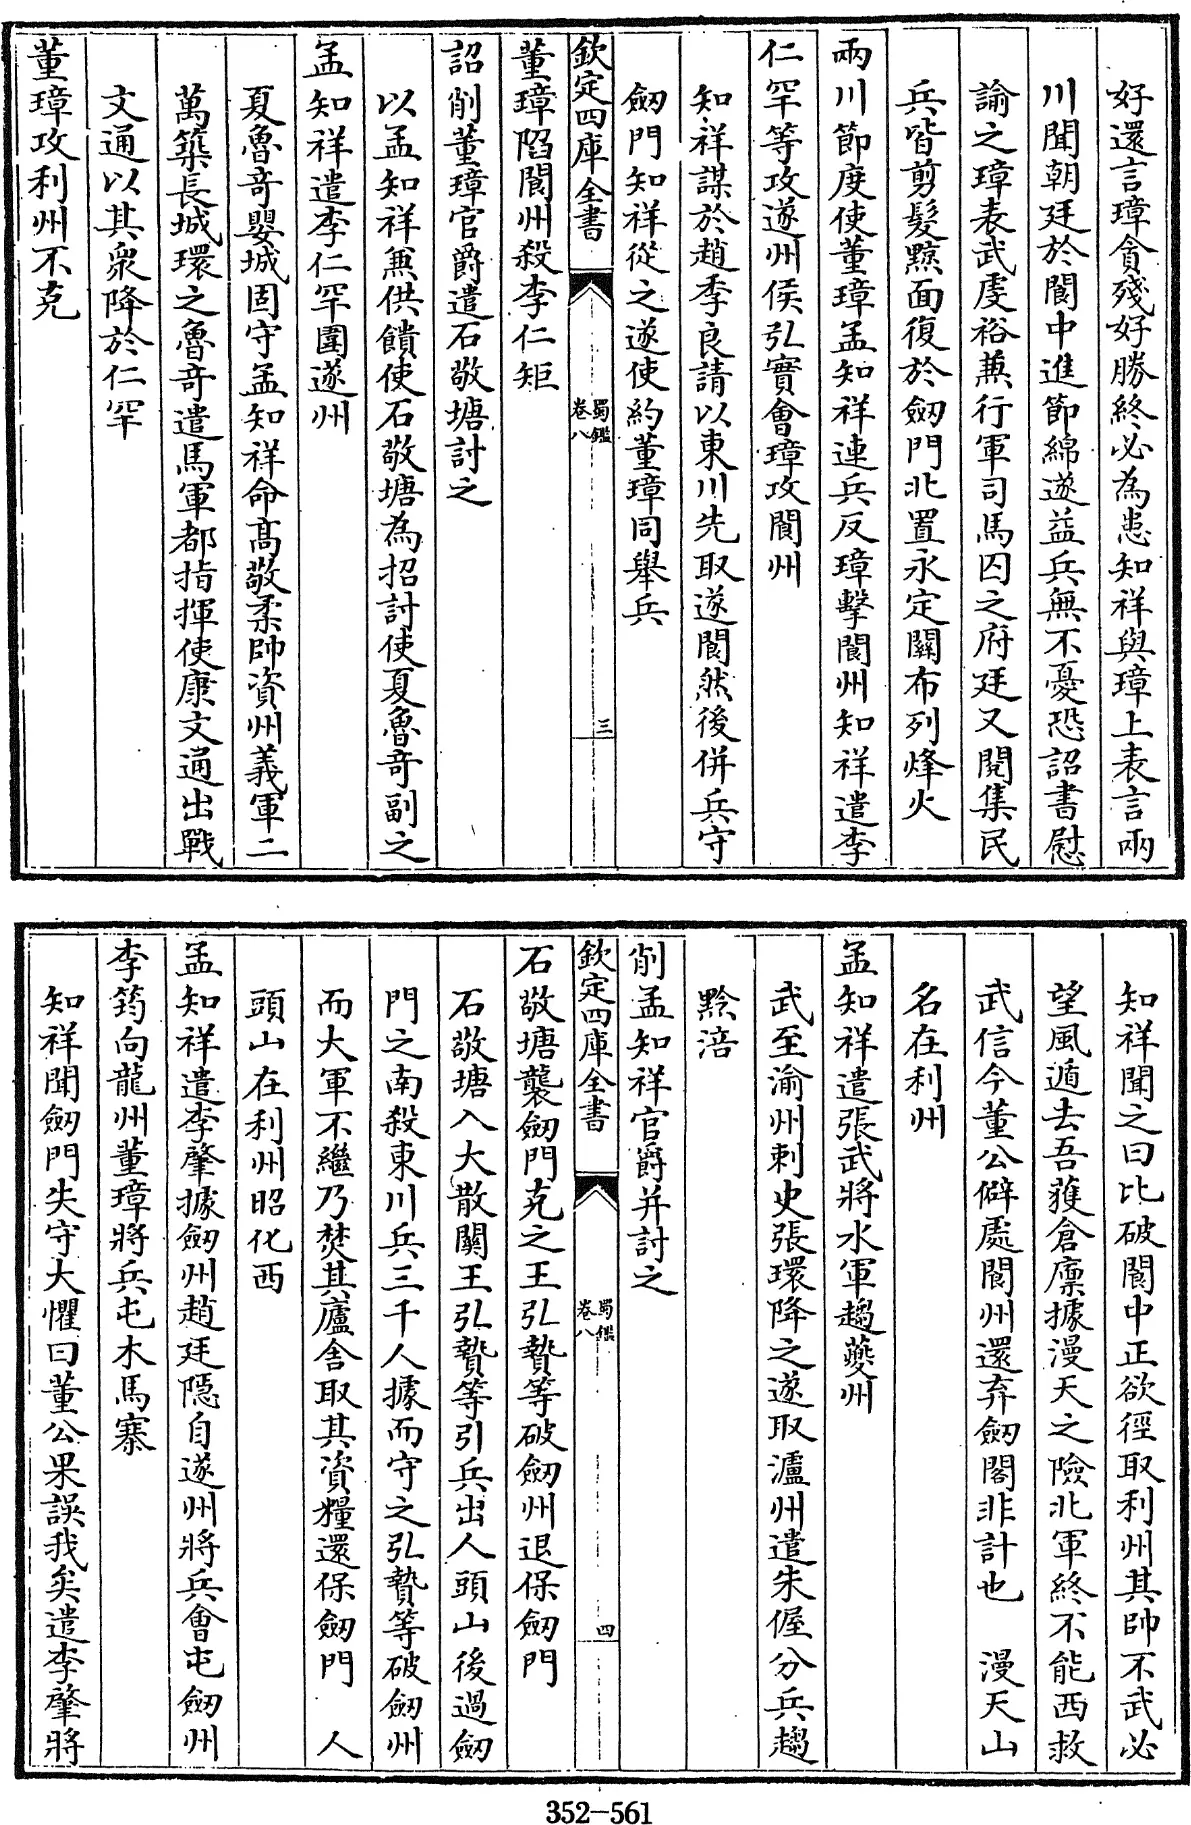 好還言璋貪殘好勝終必為患知祥與璋上表言兩
川聞朝廷於閬中進節綿遂益兵無不憂恐詔書慰
諭之璋表武虔裕兼行軍司馬囚之府廷又閱集民
兵皆剪髮黥面復於劒門北置永定關布列烽火
兩川節度使董璋孟知祥連兵反璋擊閬州知祥遣李
仁罕等攻遂州侯弘實會璋攻閬州
知祥謀於趙季良請以東川先取遂閬然後併兵守
劒門知祥從之遂使約董璋同舉兵
欽定四庫全書
蜀鑑
卷八
三
董璋陷閬州殺李仁矩
詔削董璋官爵遣石敬塘討之
以孟知祥兼供饋使石敬塘為招討使夏魯奇副之
孟知祥遣李仁罕圍遂州
夏魯奇嬰城固守孟知祥命髙敬柔帥資州義軍二
萬築長城環之魯奇遣馬軍都指揮使康文通出戰
文通以其衆降於仁罕
董璋攻利州不克
知祥聞之曰比破閬中正欲徑取利州其帥不武必
望風遁去吾獲倉廪據漫天之險北軍終不能西救
武信今董公僻處閬州還弃劒閣非計也 漫天山
名在利州
孟知祥遣張武將水軍趨夔州
武至渝州刺史張環降之遂取瀘州遣朱偓分兵趨
黔涪
削孟知祥官爵并討之
欽定四庫全書
蜀鑑
卷八
四
石敬塘襲劒門克之王弘贄等破劒州退保劒門
石敬塘入大散關王弘贄等引兵出人頭山後過劒
門之南殺東川兵三千人據而守之弘贄等破劒州
而大軍不繼乃焚其廬舍取其資糧還保劒門 人
頭山在利州昭化西
孟知祥遣李肇據劒州趙廷隱自遂州將兵會屯劒州
李筠向龍州董璋將兵屯木馬寨
知祥聞劒門失守大懼曰董公果誤我矣遣李肇將
352-561